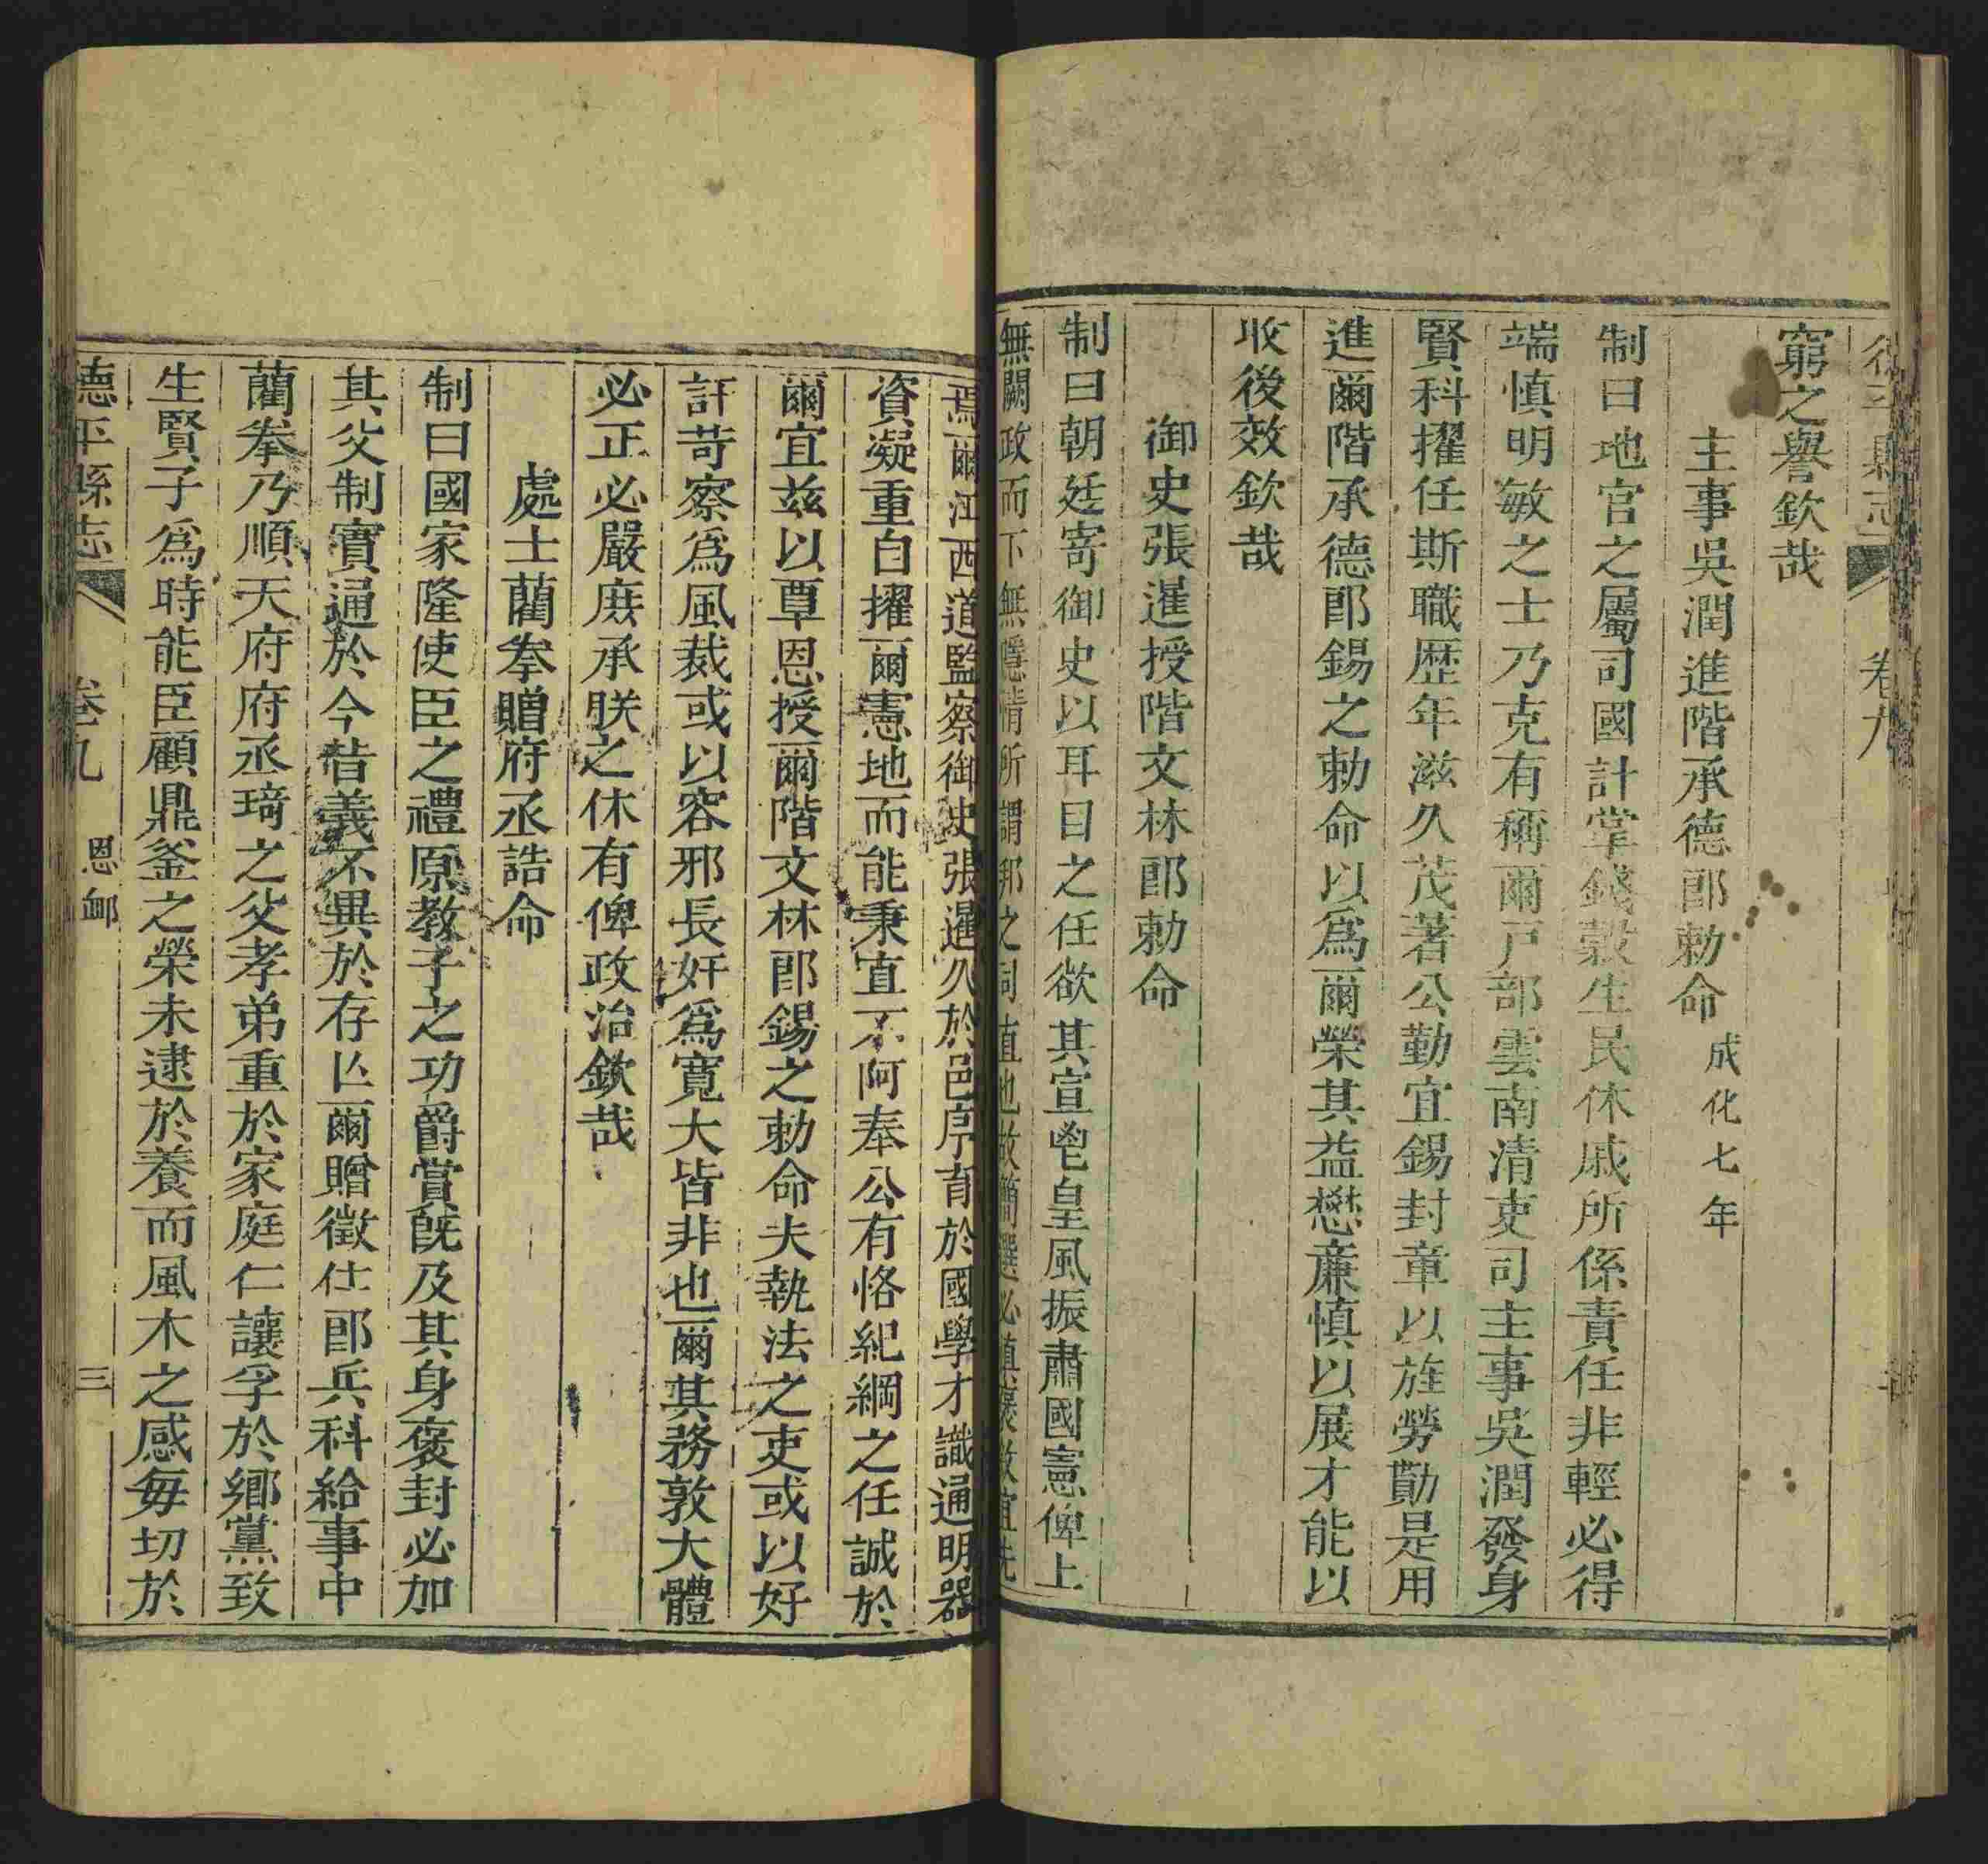 德平縣志 卷九
窮之譽欽哉
主事吳潤進階承德郎勅命 成化七年
制曰地官之屬司國計掌錢穀生民休戚所係責任非輕必得
端慎明敏之士乃克有稱爾戸部雲南清吏司主事吳潤發身
賢科擢任斯職歴年滋久茂著公勤宜錫封章以旌勞勩是用
進爾階承德郎錫之勅命以爲爾榮其益懋亷慎以展才能以
收後效欽哉
御史張暹授階文林郎勅命
制曰朝廷寄御史以耳目之任欲其宣鬯皇風振肅國憲俾上
無闕政而下無隱情所謂邦之司直也故簡選必慎襃敘宜先
焉爾江西道監察御史張暹久於邑庠育於國學才識通明器
資凝重自擢爾憲地而能秉直不阿奉公有恪紀綱之任誠於
爾宜兹以覃恩授爾階文林郎錫之勅命夫執法之吏或以好
訐苛察爲風裁或以容邪長奸爲寛大皆非也爾其務敦大體
必正必嚴庶承朕之休有俾政治欽哉
處士藺拳贈府丞誥命
制曰國家隆使臣之禮原教子之功爵賞旣及其身褒封必加
其父制實通於今昔義不異於存亾爾贈徵仕郎兵科給事中
藺拳乃順天府府丞琦之父孝弟重於家庭仁讓孚於鄉黨致
生賢子爲時能臣顧鼎釜之榮未逮於養而風木之感毎切於
德平縣志 卷九 恩䘏 三